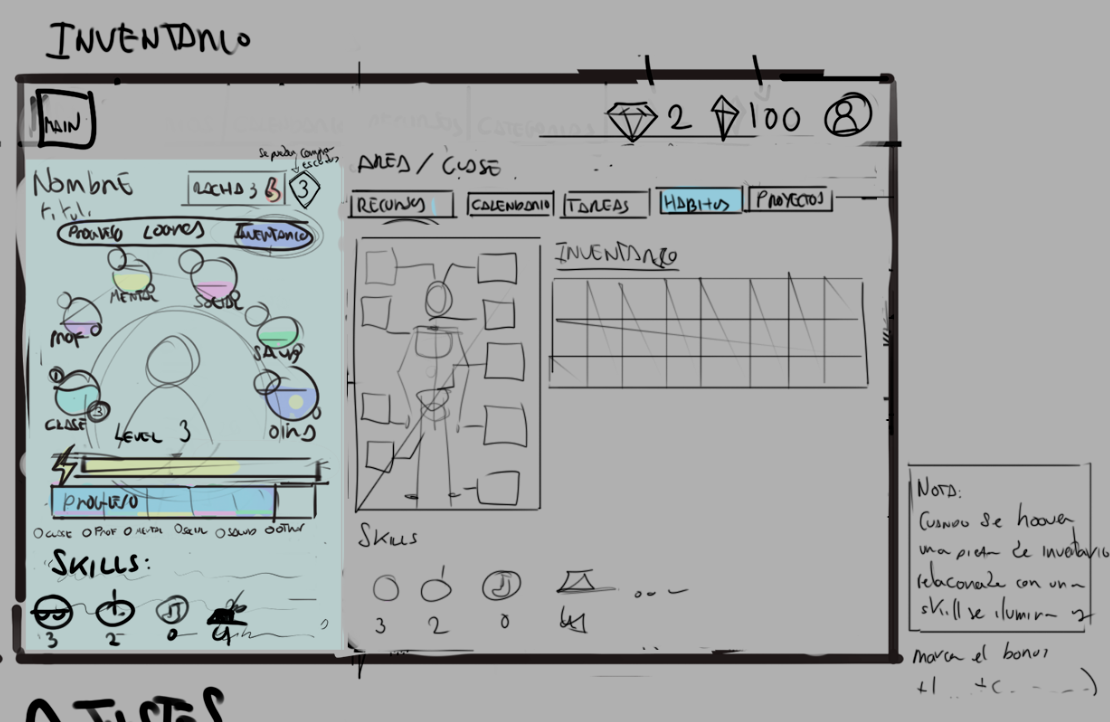 INVENTARIO
MAIN
2
100
se pueden comprar escudos
Nombre
RACHA 3
3
titulo
PROGRESO LOGROS INVENTARIO
MENTAL
SOCIAL
PROF
SALUD
1
CLASE
3
OTHER
LEVEL 3
PROGRESO
CLASE PROF MENTAL SOCIAL SALUD OTHER
SKILLS:
3 2 0 4
AREA / CLASE
RECURSOS
CALENDARIO
TAREAS
HABITOS
PROYECTOS
INVENTARIO
SKILLS
3 2 0 4
NOTA:
CUANDO se hoover
una pieza de inventario
relacionada con una
skill se ilumina y
marca el bonus
+1
AJUSTES